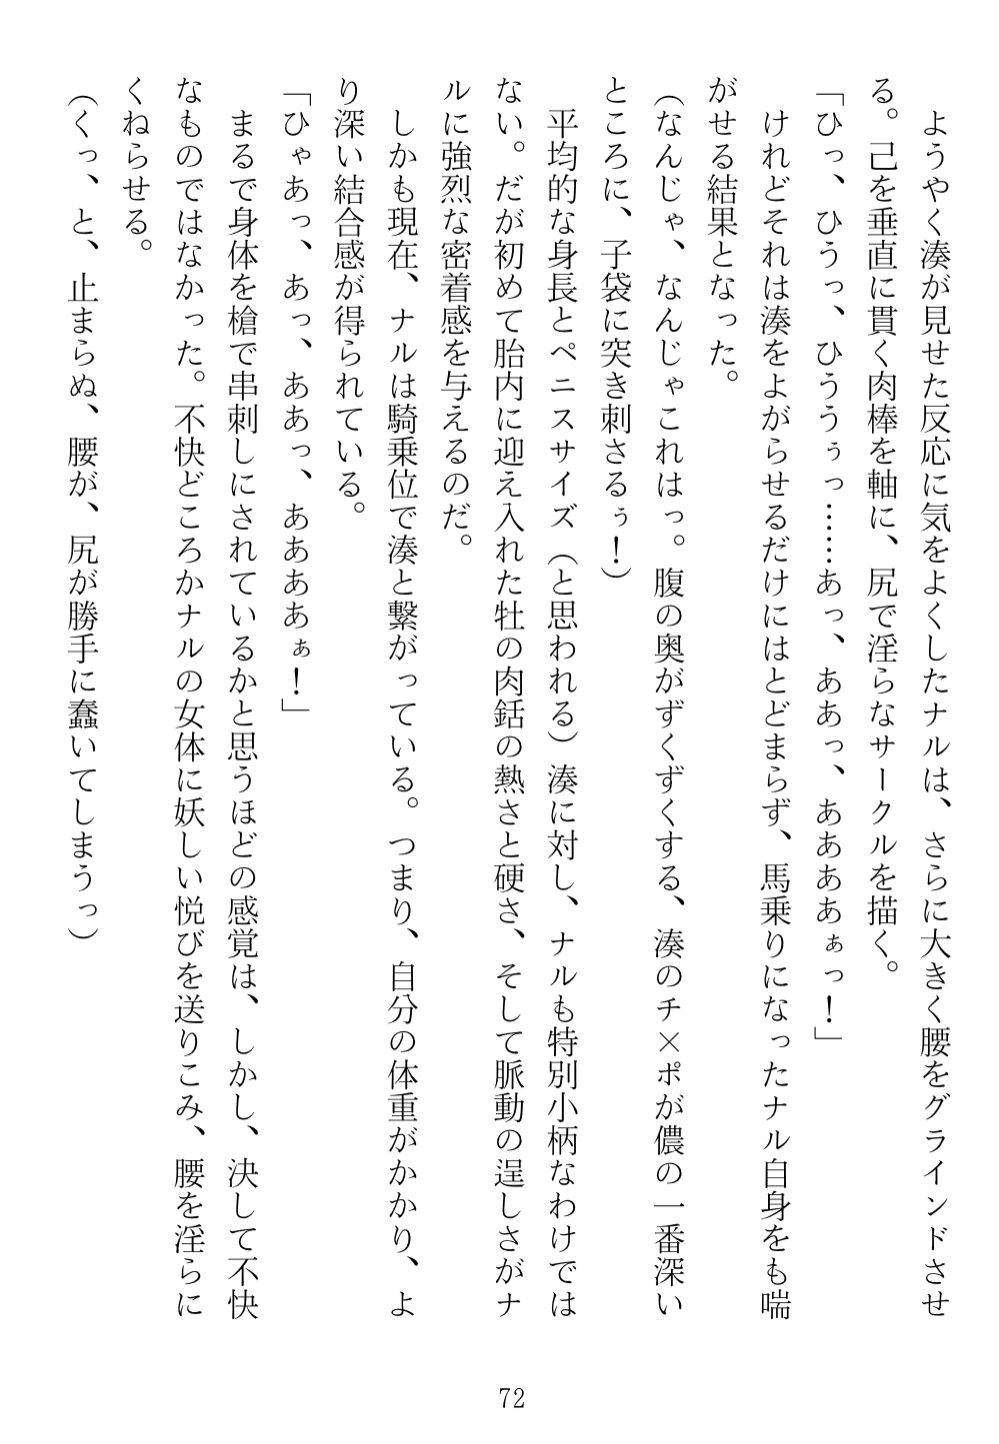 ようやく湊が見せた反応に気をよくしたナルは、さらに大きく腰をグラインドさせ
る。己を垂直に貫く肉棒を軸に、尻で淫らなサークルを描く。
「ひっ、ひうっ、ひううぅっ……あっ、ああっ、ああああぁっ！」
けれどそれは湊をよがらせるだけにはとどまらず、馬乗りになったナル自身をも喘
がせる結果となった。
（なんじゃ、なんじゃこれはっ。腹の奥がずくずくする、湊のチ×ポが儂の一番深い
ところに、子袋に突き刺さるぅ！）
平均的な身長とペニスサイズ（と思われる）湊に対し、ナルも特別小柄なわけでは
ない。だが初めて胎内に迎え入れた牡の肉銛の熱さと硬さ、そして脈動の逞しさがナ
ルに強烈な密着感を与えるのだ。
しかも現在、ナルは騎乗位で湊と繋がっている。つまり、自分の体重がかかり、よ
り深い結合感が得られている。
「ひゃあっ、あっ、ああっ、ああああぁ！」
まるで身体を槍で串刺しにされているかと思うほどの感覚は、しかし、決して不快
なものではなかった。不快どころかナルの女体に妖しい悦びを送りこみ、腰を淫らに
くねらせる。
（くっ、と、止まらぬ、腰が、尻が勝手に蠢いてしまうっ）
72